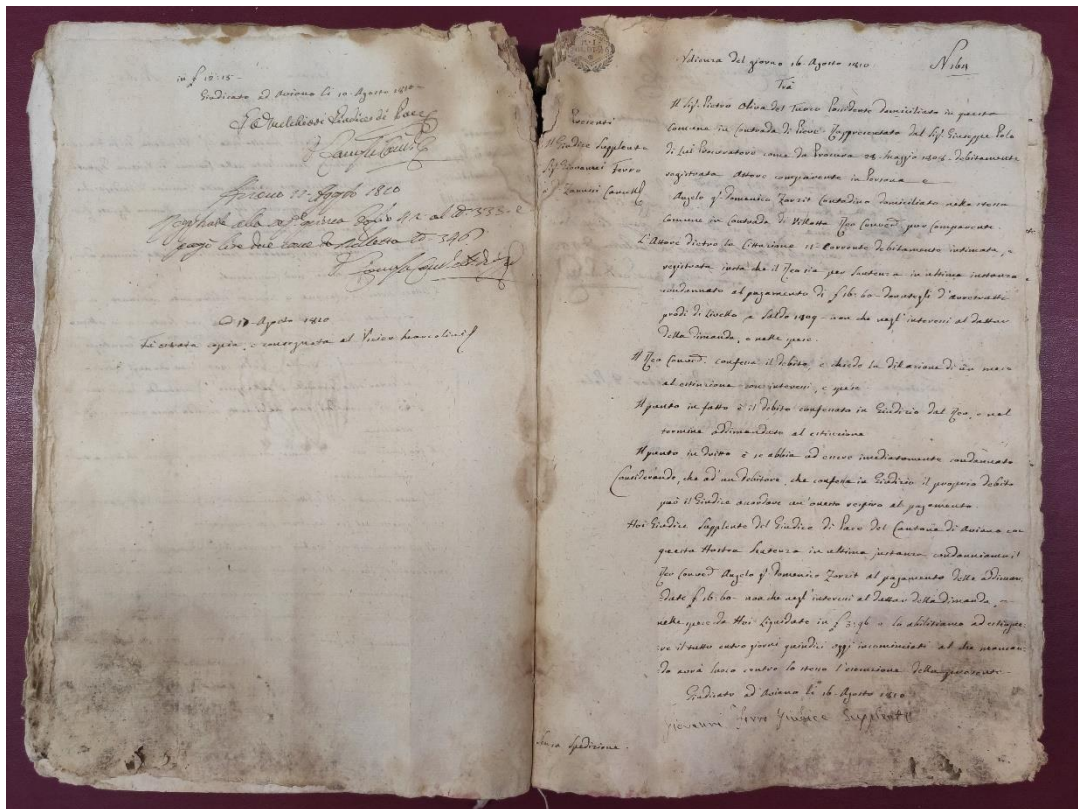 in £ 18:15-
Giudicato ad Aviano li 10. Agosto 1810-
Giudice di Pace
Aviano 22 Agosto 1810
foglio al N° 335 e
lire due
li 17 Agosto 1810
copia, e consegnata al
Presenti
Il Giudice Supplente
Sig. Giovanni Ferro
e Zanussi
Udienza del giorno 16. Agosto 1810.
N 164
Trà
Il Sig. Pietro Oliva del Turco Possidente domiciliato in questa
Comune in Contrada di Pieve Rappresentato dal Sig. Giuseppe Polo
di Lui Procuratore come da Procura 28. Maggio debitamente
registrata Attore comparente in Persona e
Angelo q. Domenico Zorzit Contadino domiciliato nella stessa
Comune in Contrada di Villotta Reo Conved. pur comparente.
L'Attore dietro la Cittazione 11 Corrente debitamente intimata, e
registrata instà che il Reo sia per Sentenza in ultima instanza
condannato al pagamento di £ 16:60- dovutegli
prodi di livello a saldo 1809- non che negl'interessi al dattar
della dimanda, e nelle spese.
Il Reo Conved. confessa il debito, e chiede la dilazione di un mese
al estinzione con interessi, e spese
Il punto in fatto è il debito confessato in Giudizio dal Reo, e nel
termine addimandato al estinzione
Il punto in dritto è se abbia ad essere imediatamente condannato
Considerando, che ad' un debitore, che confessa in Giudizio il proprio debito
può il Giudice accordare un'onesto respiro al pagamento.
Noi Giudice Supplente del Giudice di Pace del Cantone di Aviano con
questa Nostra Sentenza in ultima instanza condanniamo il
Reo Conved. Angelo q. Domenico Zorzit al pagamento delle addiman
date £ 16:60- non che negl'interessi al dattar della dimanda, e
nelle spese da Noi Liquidate in £ 3:96 e lo abilitiamo ad estingue
re il tutto entro giorni quindici oggi incominciati al che mancan
do avrà luoco contro lo stesso l'esecuzione della presente-
Giudicato ad Aviano li 16. Agosto 1810
Giovanni Ferro Giudice Supplente
Senza Spedizione.